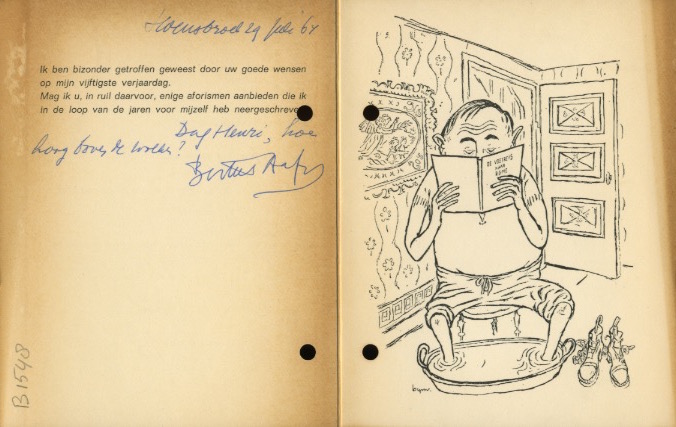 Hoensbroek 29 juli 64
Ik ben bizonder getroffen geweest door uw goede wensen
op mijn vijftigste verjaardag.
Mag ik u, in ruil daarvoor, enige aforismen aanbieden die ik
in de loop van de jaren voor mijzelf heb neergeschreve
Dag Henri, hoe
hoog boven de
Bertus Aafjes
B1548
DE VOETREIS
NAAR
ROME